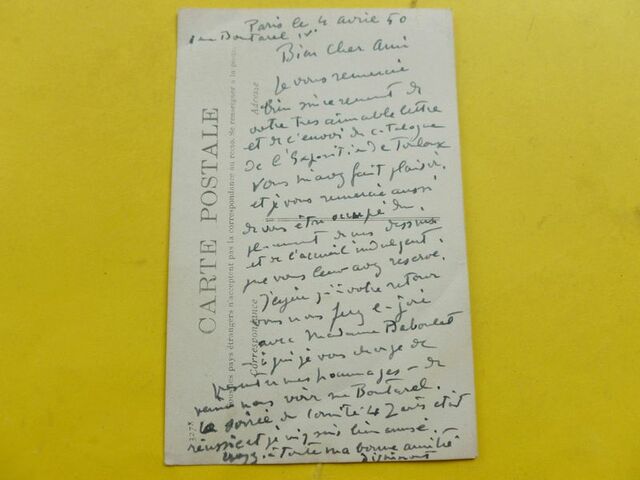 Paris le 4 avril 50
rue Boutarel IVe
Bien Cher Ami
Je vous remercie
bien sincèrement de
votre très aimable lettre
et de l'envoi du catalogue
de l'Exposition de Toulouse
Vous m'avez fait plaisir.
et je vous remercie aussi
de vous être occupé du
placement de mes dessins
et de l'accueil indulgent
que vous leur avez réservé.
votre retour
vous nous la joie
avec Madame
à qui je vous charge de
mes hommages - de
venir nous voir rue Boutarel.
La soirée du comité de était
réussie et je m'y suis bien amusé.
à toute ma bonne amitié
CARTE POSTALE
Tous les pays étrangers n'acceptent pas la correspondance au recto. Se renseigner à la poste
Correspondance
Adresse
3278